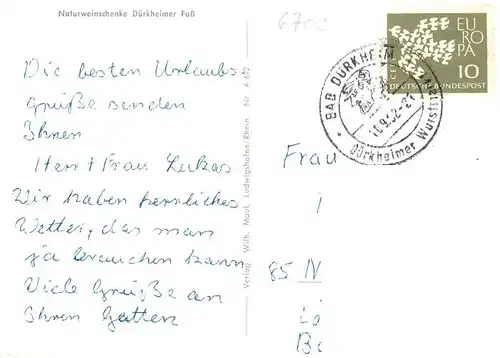 Naturweinschenke Dürkheimer Faß
6700
Die besten Urlaubs
grüße senden
Ihnen
Herr + Frau Lukas
Wir haben herrliches
Wetter, das man
ja brauchen kann
Viele Grüße an
Ihren Gatten
Verlag Wilh. Maul, Ludwigshafen/Rhein Nr. A 692
EUROPA
CEPT
10
DEUTSCHE BUNDESPOST
BAD DÜRKHEIM
Dürkheimer Wurstm
Frau
85 N